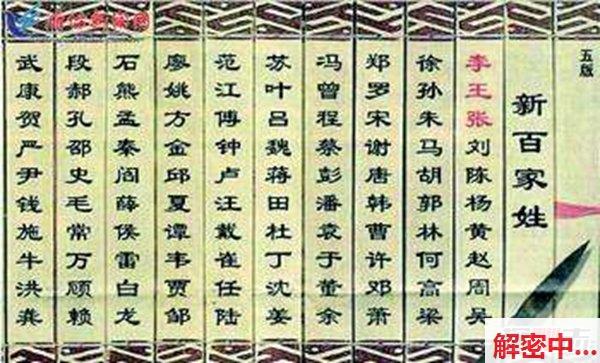 五版
新百家姓
李王张刘陈杨黄赵周吴
徐孙朱马胡郭林何高梁
郑罗宋谢唐韩曹许邓萧
冯曾程蔡彭潘袁于董余
苏叶吕魏蒋田杜丁沈姜
范江傅钟卢汪戴崔任陆
廖姚方金邱夏谭韦贾邹
石熊孟秦阎薛侯雷白龙
段郝孔邵史毛常万顾赖
武康贺严尹钱施牛洪龚
解密中...